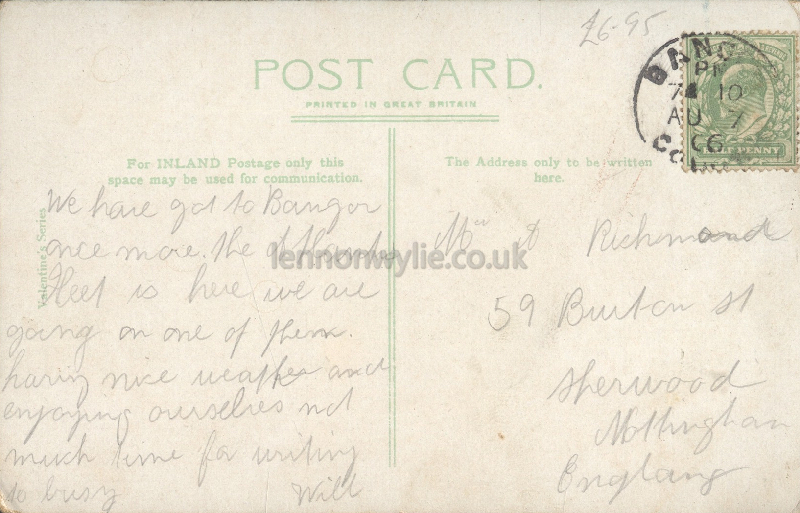 £6-95
POST CARD.
PRINTED IN GREAT BRITAIN
BAN
PM
7 10
AU 7
06
CO
HALF PENNY
For INLAND Postage only this
space may be used for communication.
The Address only to be written
here.
Valentine's Series
We have got to Bangor
once more. the Atlantic
fleet is here we are
going on one of them.
having nice weather and
enjoying ourselves not
much time for writing
to busy Will
Richmond
59 Burton st
Sherwood
Nottingham
England
lennonwylie.co.uk